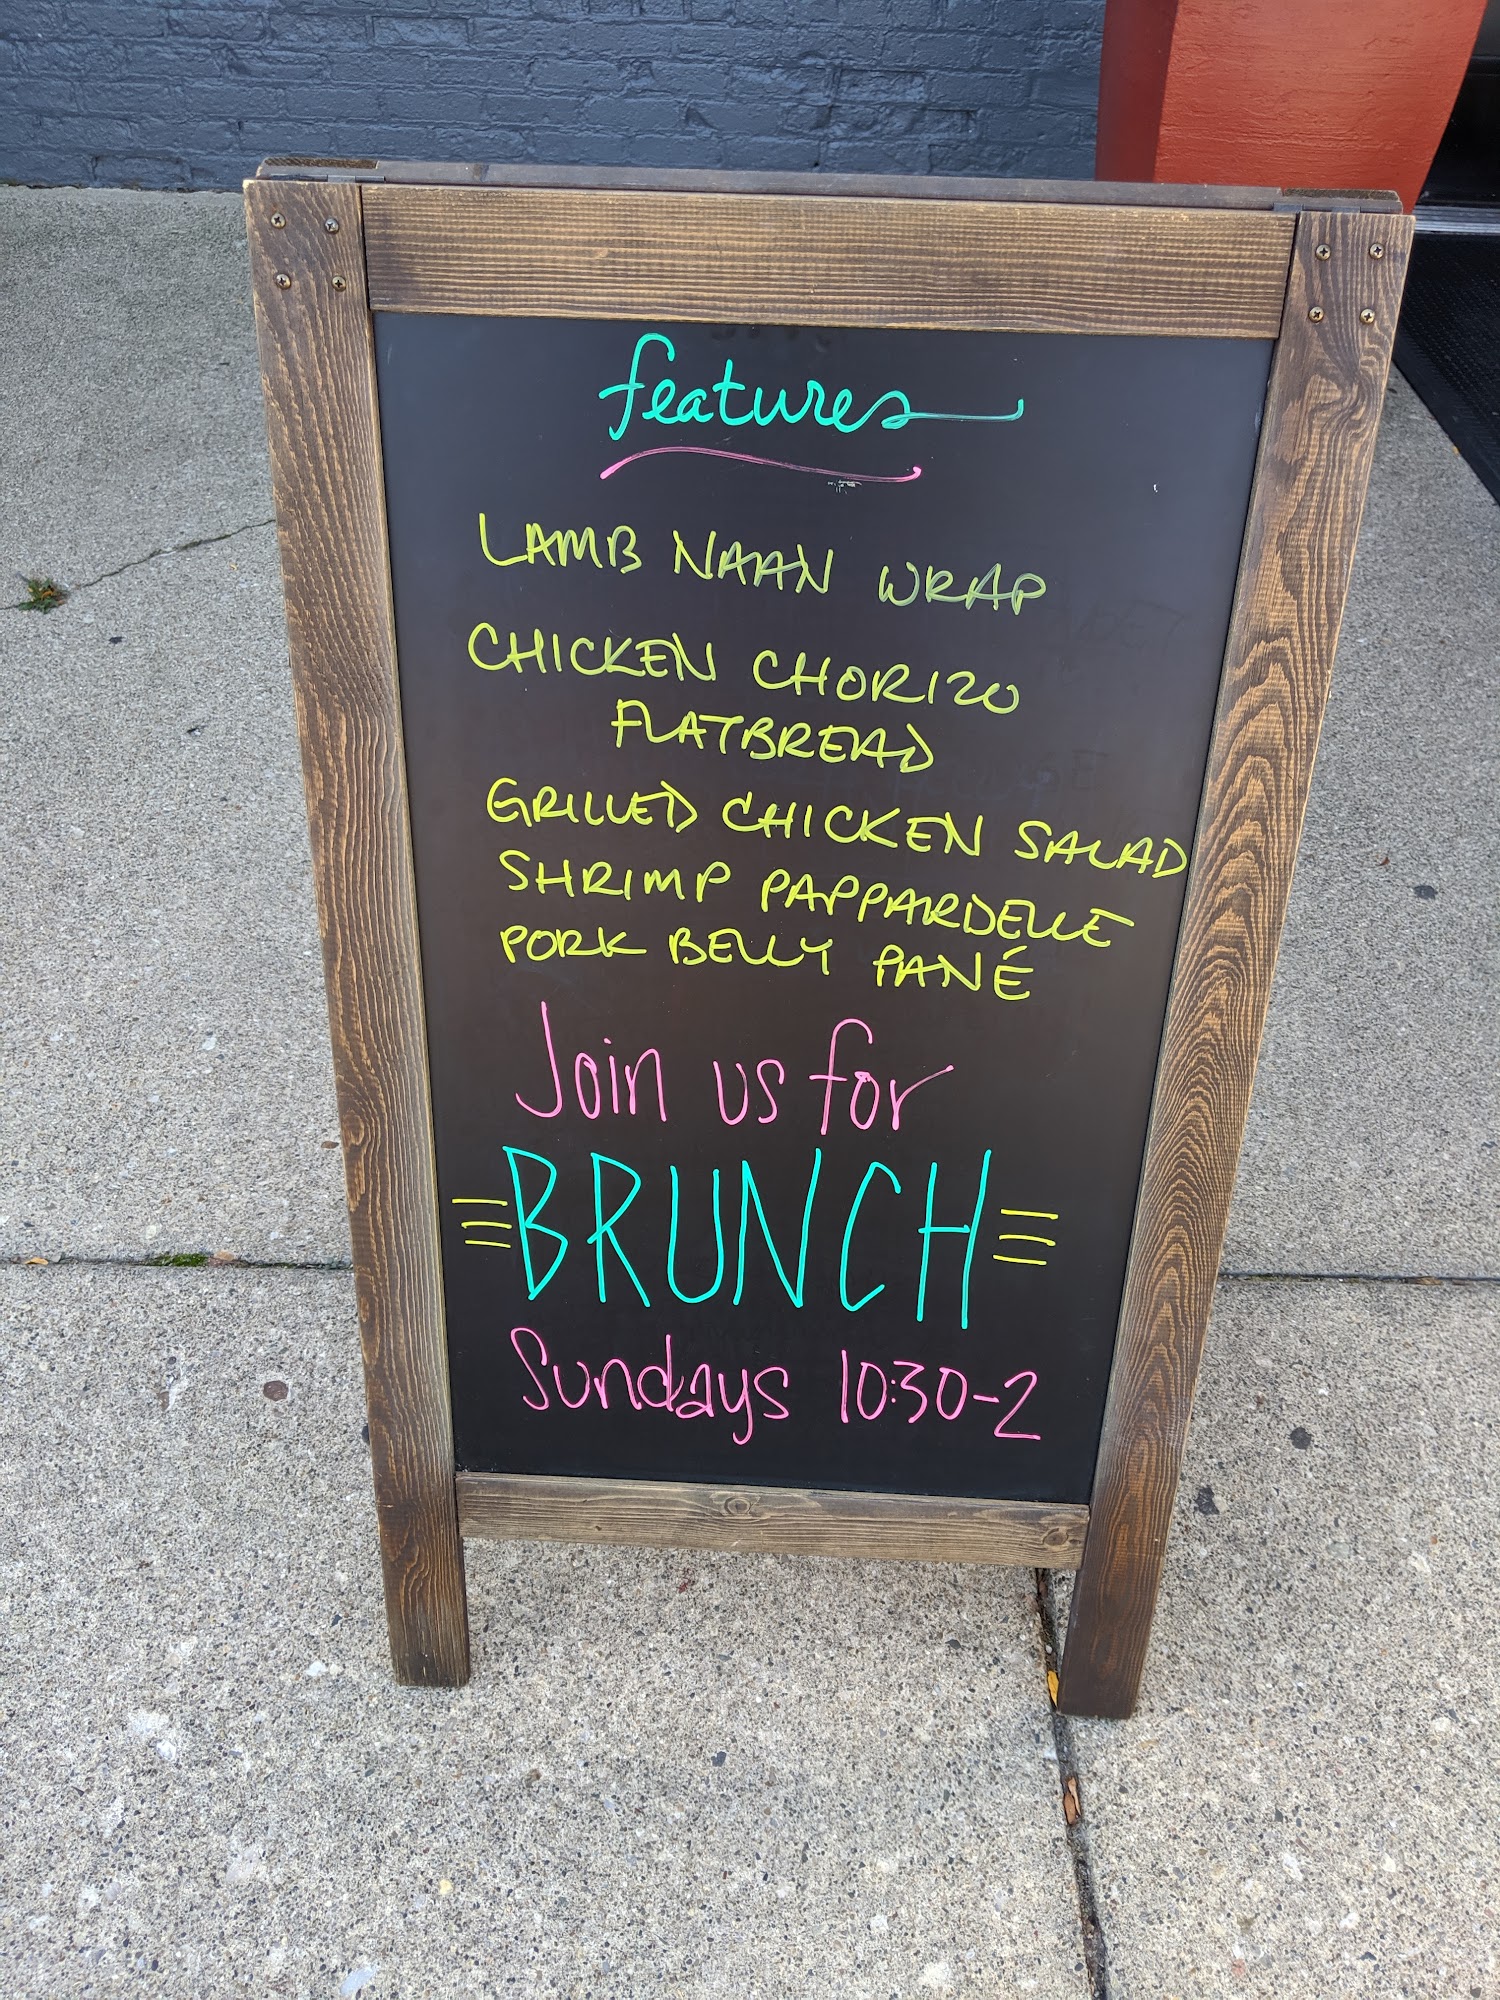 features
LAMB NAAN WRAP
CHICKEN CHORIZO
FLATBREAD
GRILLED CHICKEN SALAD
SHRIMP PAPPARDELLE
PORK BELLY PANÉ
Join us for
BRUNCH
Sundays 10:30-2